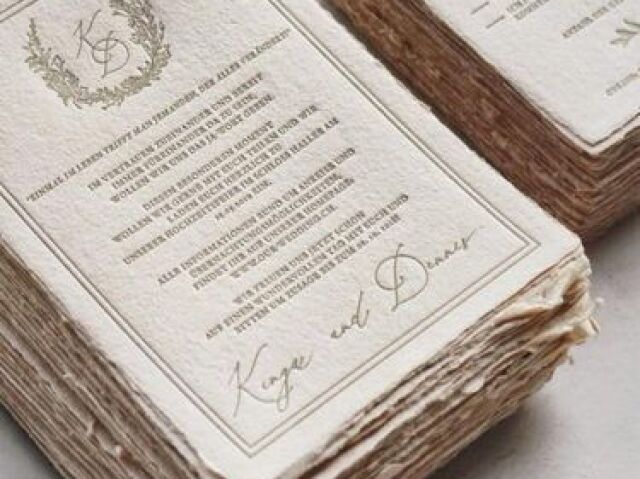 K
D
"EINMAL IM LEBEN TRIFFT MAN JEMANDEN DER ALLES VERÄNDERT"
IM VERTRAUEN ZUEINANDER UND BEREIT
IMMER FÜREINANDER DA ZU SEIN,
WOLLEN WIR UNS DAS JA-WORT GEBEN.
DIESEN BESONDEREN MOMENT
WOLLEN WIR GERNE MIT EUCH TEILEN UND WIR
LADEN EUCH HERZLICH ZU
UNSERER HOCHZEITSFEIER IM SCHLOSS HALLER AM
EIN.
ALLE INFORMATIONEN RUND UM ANREISE UND
ÜBERNACHTUNGSMÖGLICHKEITEN,
FINDET IHR AUF UNSERER HOMEPAGE
WIR FREUEN UNS JETZT SCHON
AUF EINEN WUNDERVOLLEN TAG MIT EUCH UND
BITTEN UM ZUSAGE BIS ZUM
Kinga und Dennis